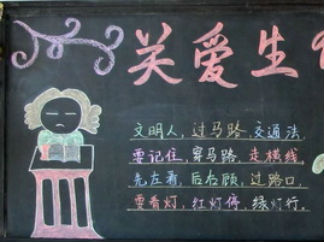 关爱生
文明人,过马路,交通法,
要记住,穿马路,走横线,
先左看,后右顾,过路口,
要看灯,红灯停,绿灯行。